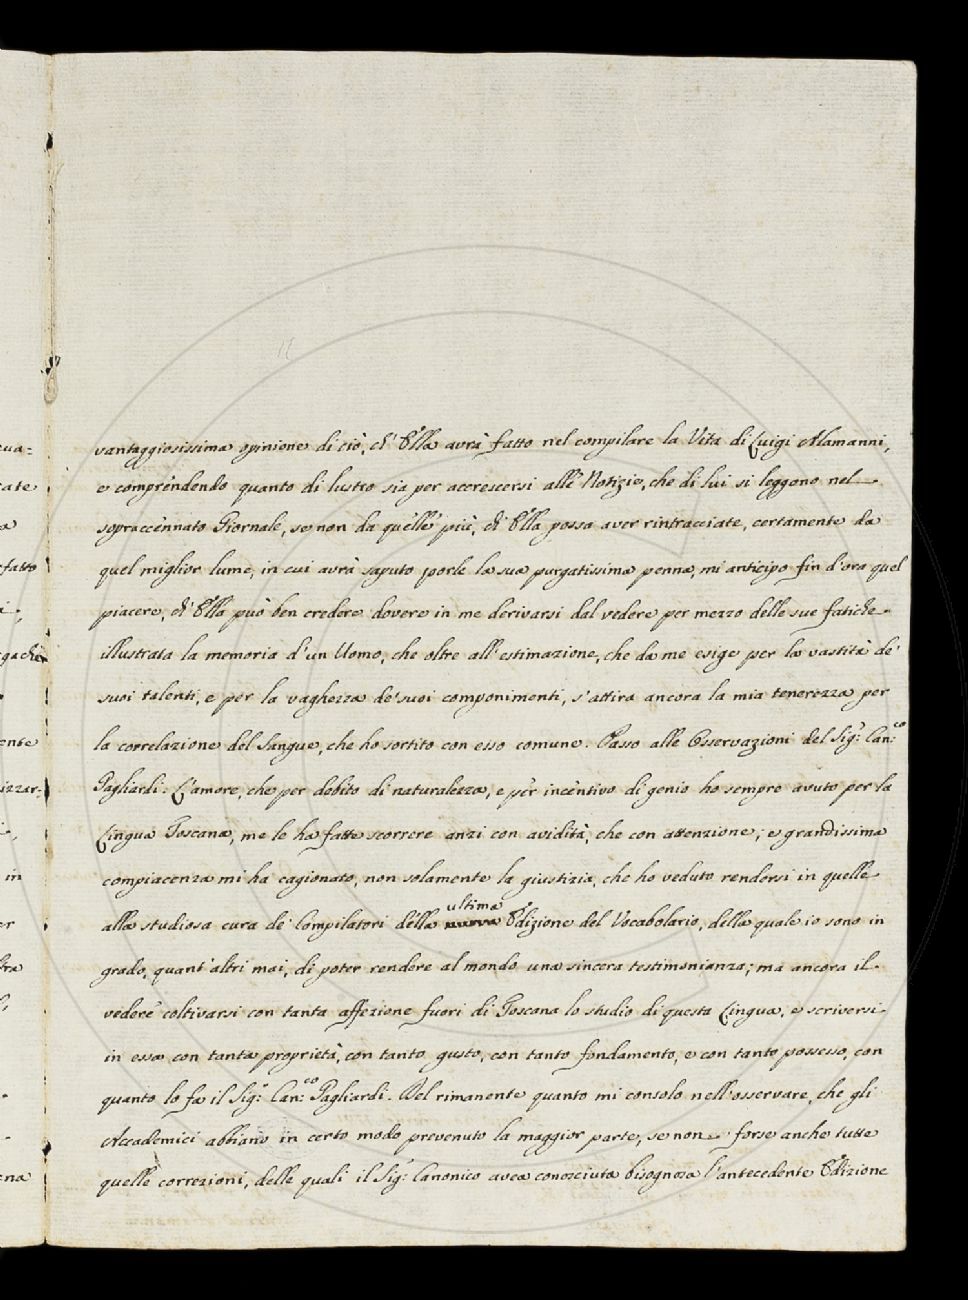 vantaggiosissima opinione di ciò, ch' Ella avrà fatto nel compilare la Vita di Luigi Alamanni,
e comprendendo quanto di lustro sia per accrescersi alle Notizie, che di lui si leggono nel
sopraccennato Giornale, se non da quelle più, ch' Ella possa aver rintracciate, certamente da
quel miglior lume, in cui avrà saputo porle la sua purgatissima penna, mi anticipo fin d'ora quel
piacere, ch' Ella può ben credere dovere in me derivarsi dal vedere per mezzo delle sue fatiche
illustrata la memoria d'un Uomo, che oltre all' estimazione, che da me esige per la vastità de'
suoi talenti, e per la vaghezza de' suoi componimenti, s'attira ancora la mia tenerezza per
la correlazione del Sangue, che ho sortito con esso comune. Passo alle Osservazioni del Sig: Can:co
Pagliardi. L'amore, che per debito di naturalezza, e per incentivo di genio ho sempre avuto per la
Lingua Toscana, me le ha fatte scorrere anzi con avidità, che con attenzione; e grandissima
compiacenza mi ha cagionato, non solamente la giustizia, che ho veduto rendersi in quelle
ultima
alla studiosa cura de' Compilatori della nuova Edizione del Vocabolario, della quale io sono in
grado, quant' altri mai, di poter rendere al mondo una sincera testimonianza; ma ancora il
vedere coltivarsi con tanta affezione fuori di Toscana lo studio di questa Lingua, e scriversi
in essa con tanta proprietà, con tanto gusto, con tanto fondamento, e con tanto possesso, con
quanto lo fa il Sig: Can:co Pagliardi. Del rimanente quanto mi consolo nell' osservare, che gli
Accademici abbiano in certo modo prevenuto la maggior parte, se non forse anche tutte
quelle correzioni, delle quali il Sig: Canonico avea conosciuta bisognosa l'antecedente Edizione